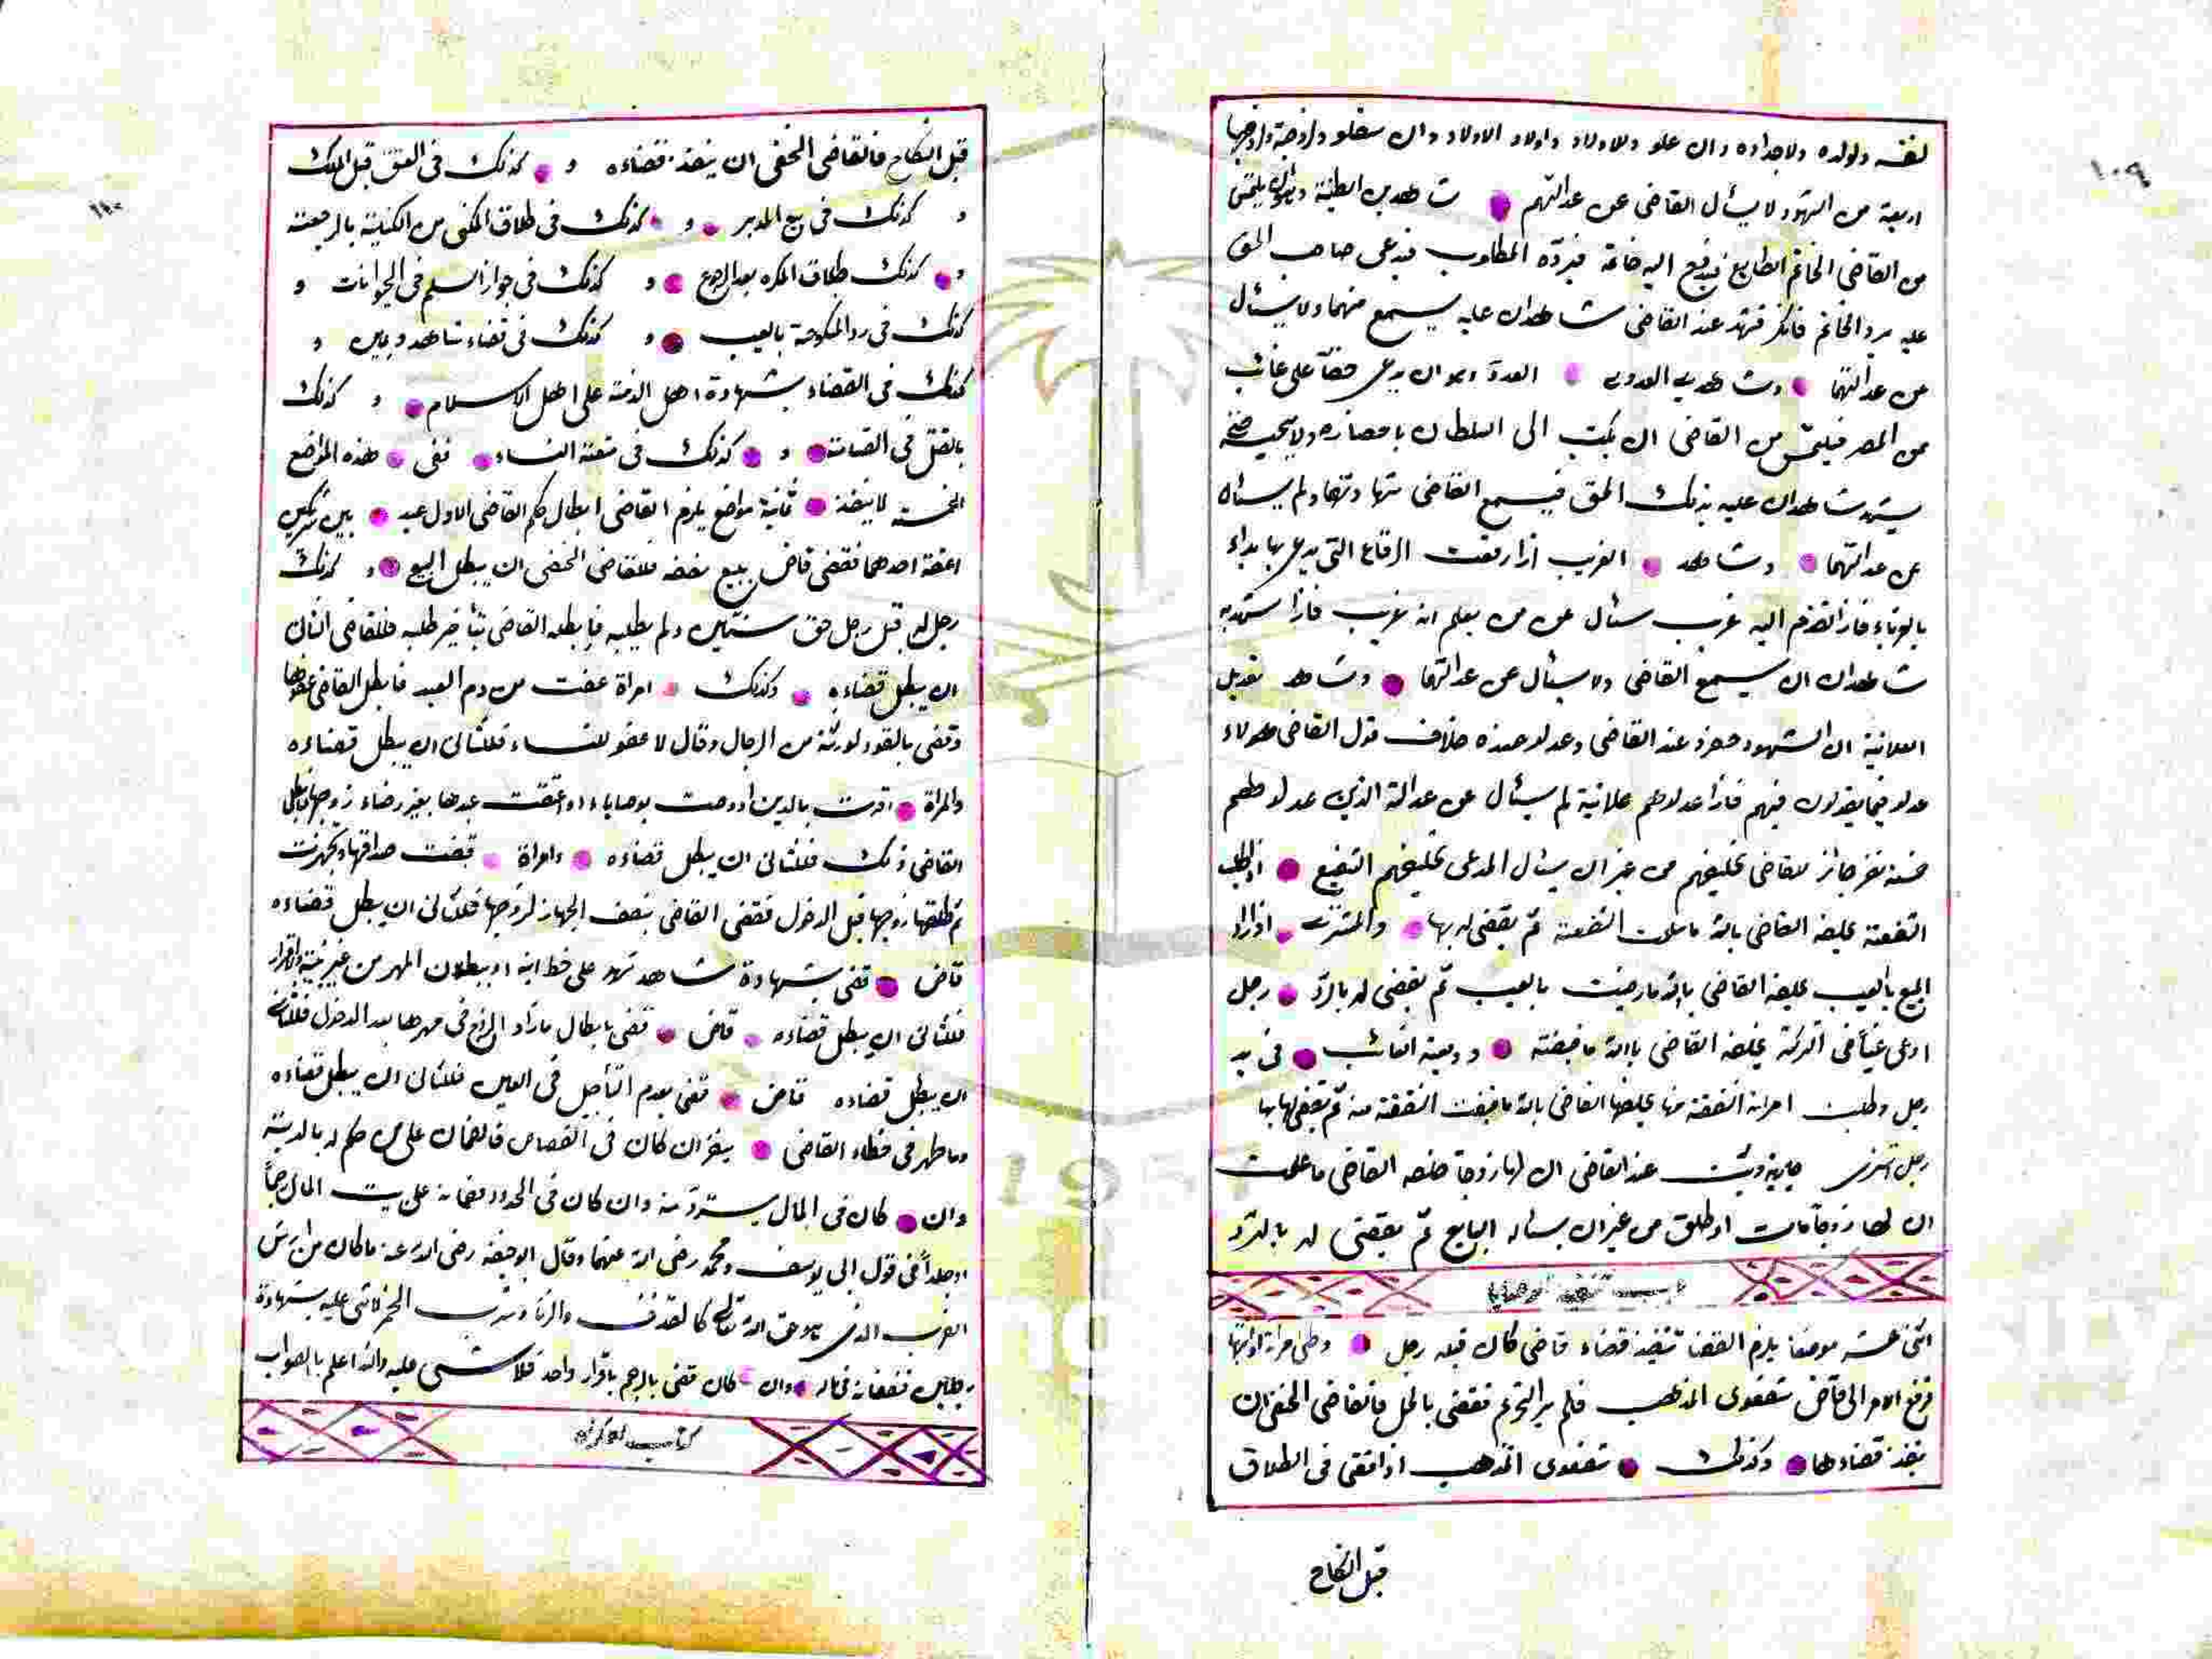 ١٠٩
لنفسه ولولده ولاجداده وان علو ولاولاد واولاد الاولاد وان سفلو ولزوجته ولزوجها
اربعة من الشهود لا يسأل القاضي عن عدالتهم شاهدين الطينة وهو ان يلتمس
من القاضي الخاتم الطابع فيدفع اليه خاتمه فيرده المطلوب فيدعى صاحب الحق
عليه برد الخاتم فانكر فشهد عند القاضي شاهدان عليه يسمع منهما ولا يسئال
عن عدالتهما وشاهدين العدوى العدوى وهو ان يدعى حقا على غائب
من المصر فيلتمس من القاضي ان يكتب الى السلطان باحضاره ولا يجيب حتى
يشهد شاهدان عليه بذلك الحق فيسمع القاضي شهادتهما ولم يسئال
عن عدالتهما وشاهد الغريب اذا رفعت الرقاع التي يدعى بها بداء
بالغرباء فاذا تقدم اليه غريب سئال عن من يعلم انه غريب فاذا شهد به
شاهدان ان يسمع القاضي ولا يسئال عن عدالتهما وشاهد تعديل
العلانية ان الشهود حضرو عند القاضي وعدلو عنده خلاف قول القاضي هولاء
عدلو فيما يقولون فيهم فاذا عدلوهم علانية لم يسئال عن عدالة الذين عدلوهم
خمسة نفر جائز للقاضي تحليفهم من غير ان يسئال المدعى تحليفهم الشفيع اذا طلب
الشفعة يحلفه القاضي بالله ما سلمت الشفعة ثم يقضي له بها والمشترى اذا اراد
المبيع بالعيب يحلفه القاضي بالله ما رضيت بالعيب ثم يقضي له بالرد رجل
ادعى عينا في التركة يحلفه القاضي بالله ما قبضته ووديعة الغائب في يد
رجل وطلبت امرأته النفقة منها يحلفها القاضي بالله ما قبضت النفقة منه ثم يقضي لها بها
رجل اشترى جارية وثبت عند القاضي ان لها زوجا حلفه القاضي ما علمت
ان لها زوجا مات او طلق من غير ان يسئاله البايع ثم يقضي له بالرد
باب تنفيذ القضايا
اثنى عشر موضعا يلزم القضا تنفيذ قضاء قاضي كان قبله رجل وطى امرأة او ابنتها
فرفع الامر الى قاض شفعوى المذهب فلم ير التحريم فقضى بالحل فالقاضي الحنفي ان
ينفذ قضاءها وكذلك شفعوى المذهب اذا قضى في الطلاق
قبل النكاح
١١٠
قبل النكاح فالقاضي الحنفي ان ينفذ قضاءه و كذلك في العتق قبل الملك
و كذلك في بيع المدبر و كذلك في طلاق المكنى من الكناية بالرجعة
و كذلك طلاق المكره و كذلك في جواز السلم في الحيوانات و
كذلك في رد المنكوحة بالعيب و كذلك في قضاء شاهد ويمين و
كذلك في القضاء بشهادة اهل الذمة على اهل الاسلام و كذلك
بالقتل في القسامة و كذلك في متعة النساء ففى هذه المواضع
الخمسة لا ينفذ ثمانية مواضع يلزم القاضي ابطال حكم القاضي الاول عبد بين شريكين
اعتقه احدهما فقضى قاض ببيع نصفه فللقاضي الحنفي ان يبطل البيع و كذلك
رجل له قبل رجل حق سنتين ولم يطلبه فابطله القاضي بتأخير طلبه فللقاضي الثاني
ان يبطل قضاءه وكذلك امرأة عفت من دم العبد فابطل القاضي عفوها
وقضى بالقود لورثته من الرجال وقال لا عفو للنساء فللثاني ان يبطل قضاءه
والمرأة اقرت بالدين او وصت بوصاياء او اعتقت عبدها بغير رضاء زوجها فابطل
القاضي ذلك فللثاني ان يبطل قضاءه وامرأة قبضت صداقها وتجهزت
ثم طلقها زوجها قبل الدخول فقضى القاضي بنصف الجهاز لزوجها فللثاني ان يبطل قضاءه
قاض قضى بشهادة شاهد شهد على خط ابيه او ببطلان المهر من غير بينة او اقرار
فللثاني ان يبطل قضاءه قاض قضى بابطال ما زاد الزوج في مهرها بعد الدخول فللثاني
ان يبطل قضاءه قاض قضى بعدم التأجيل في العنين فللثاني ان يبطل قضاءه
وما ظهر في خطاء القاضي ينظر ان كان في القصاص فالضمان على من حكم له بالدية
وان كان في المال يسترد منه وان كان في الحدود ضمانه على بيت المال رجما
او جلدا في قول ابي يوسف ومحمد رضى الله عنهما وقال ابو حنيفة رضى الله عنه ما كان من ارش
الضرب الذي هو حق الله تعالى كالقذف والزنا وشرب الخمر لا شي عليه بشهادة
رجلين فضمانه في ماله وان كان قضى بالرجم باقرار واحد فلا شى عليه والله اعلم بالصواب
كتاب الاكراه